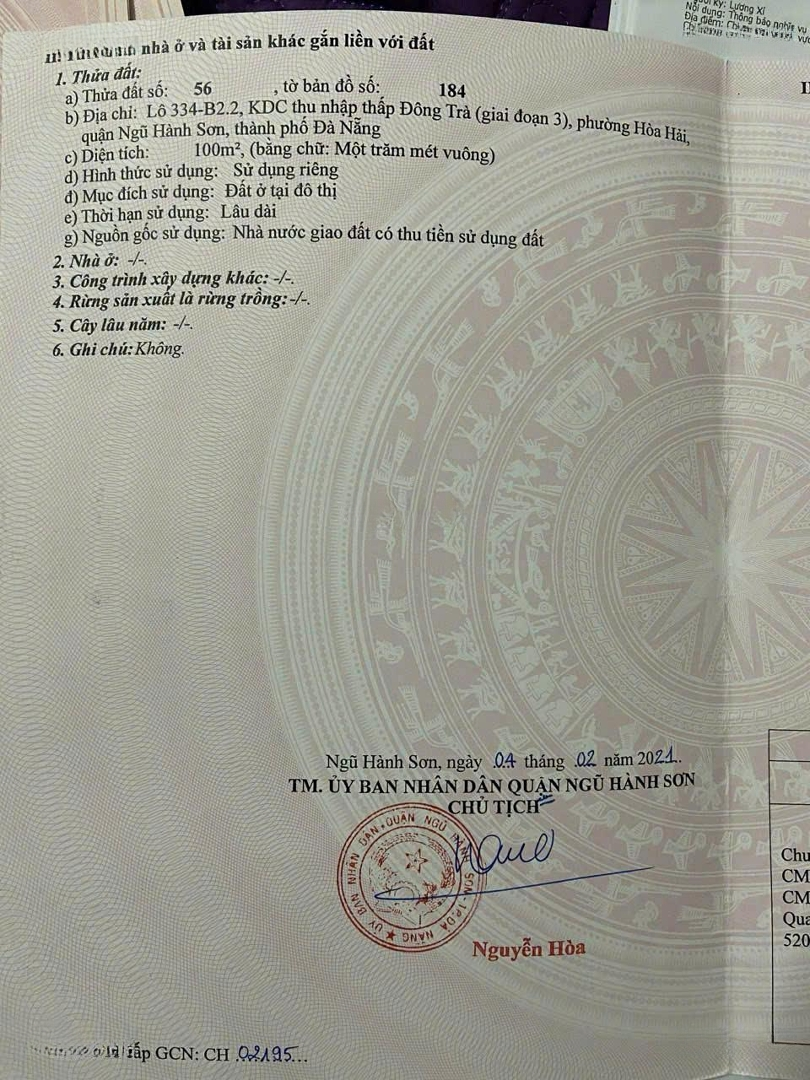 ký: Lương Xí
Nội dung: Thông báo nghĩa vụ
Địa điểm:
nhà ở và tài sản khác gắn liền với đất
1. Thửa đất:
a) Thửa đất số: 56 , tờ bản đồ số: 184
b) Địa chỉ: Lô 334-B2.2, KDC thu nhập thấp Đông Trà (giai đoạn 3), phường Hòa Hải,
quận Ngũ Hành Sơn, thành phố Đà Nẵng
c) Diện tích: 100m², (bằng chữ: Một trăm mét vuông)
d) Hình thức sử dụng: Sử dụng riêng
đ) Mục đích sử dụng: Đất ở tại đô thị
e) Thời hạn sử dụng: Lâu dài
g) Nguồn gốc sử dụng: Nhà nước giao đất có thu tiền sử dụng đất
2. Nhà ở: -/-.
3. Công trình xây dựng khác: -/-.
4. Rừng sản xuất là rừng trồng: -/-.
5. Cây lâu năm: -/-.
6. Ghi chú: Không.
Ngũ Hành Sơn, ngày 04 tháng 02 năm 2021.
TM. ỦY BAN NHÂN DÂN QUẬN NGŨ HÀNH SƠN
CHỦ TỊCH
ỦY BAN NHÂN DÂN QUẬN NGŨ HÀNH SƠN-T.P.ĐÀ NẴNG
Nguyễn Hòa
Chu
CM
CM
Qua
520
cấp GCN: CH 02195...